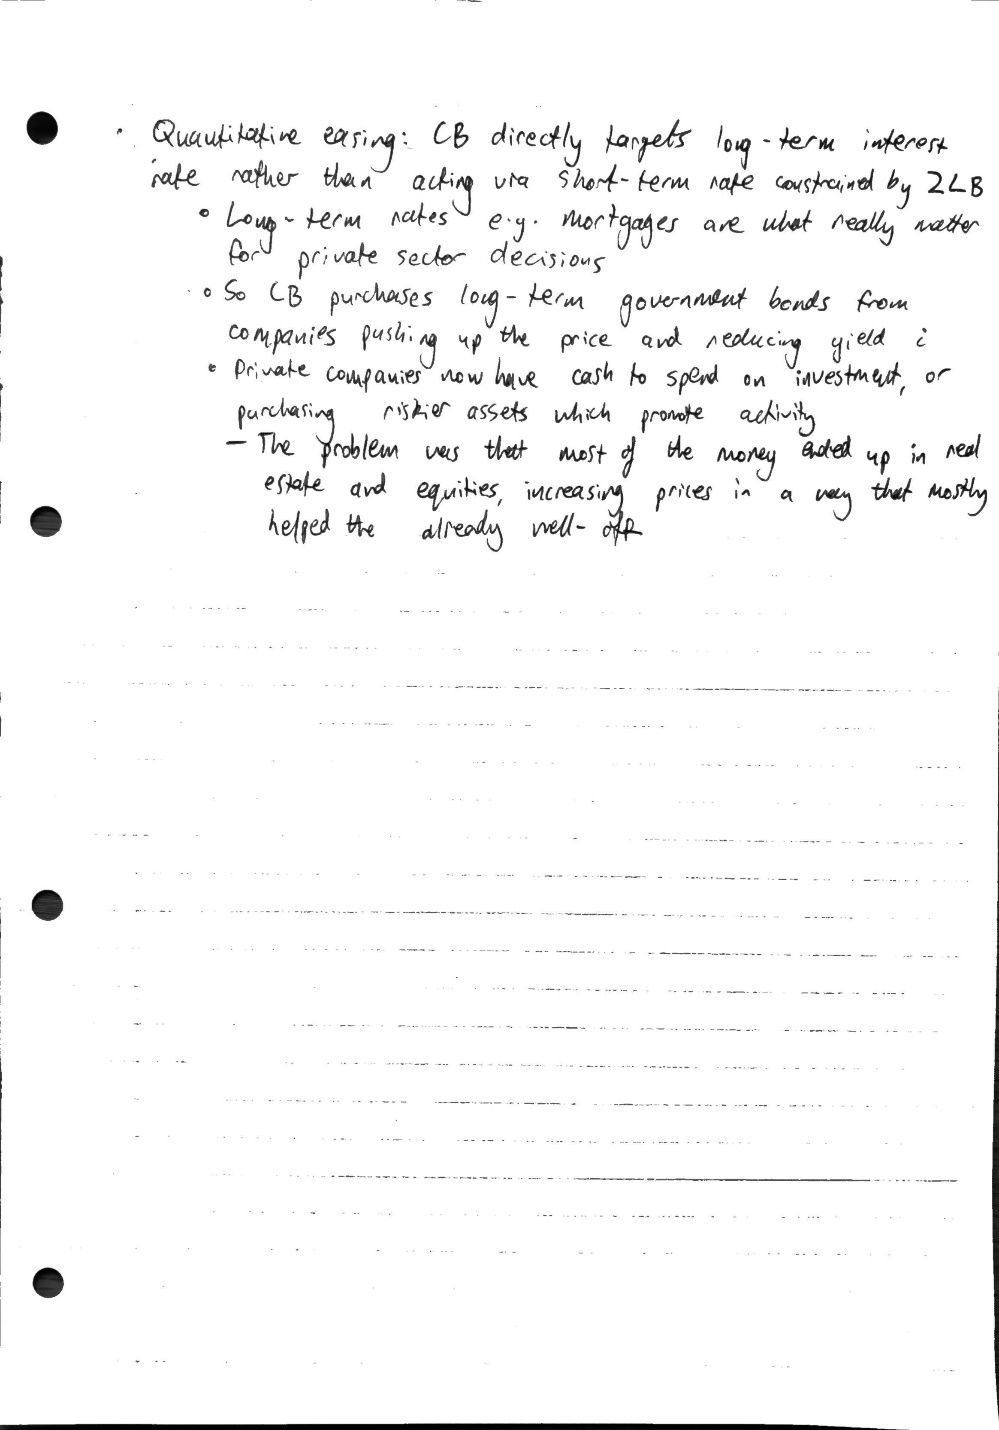 · Quantitative easing: CB directly targets long-term interest
rate rather than acting via short-term rate constrained by ZLB
∘ Long-term rates e.g. mortgages are what really matter
for private sector decisions
∘ So CB purchases long-term government bonds from
companies pushing up the price and reducing yield i
∘ Private companies now have cash to spend on investment, or
purchasing riskier assets which promote activity
– The problem was that most of the money ended up in real
estate and equities, increasing prices in a way that mostly
helped the already well-off